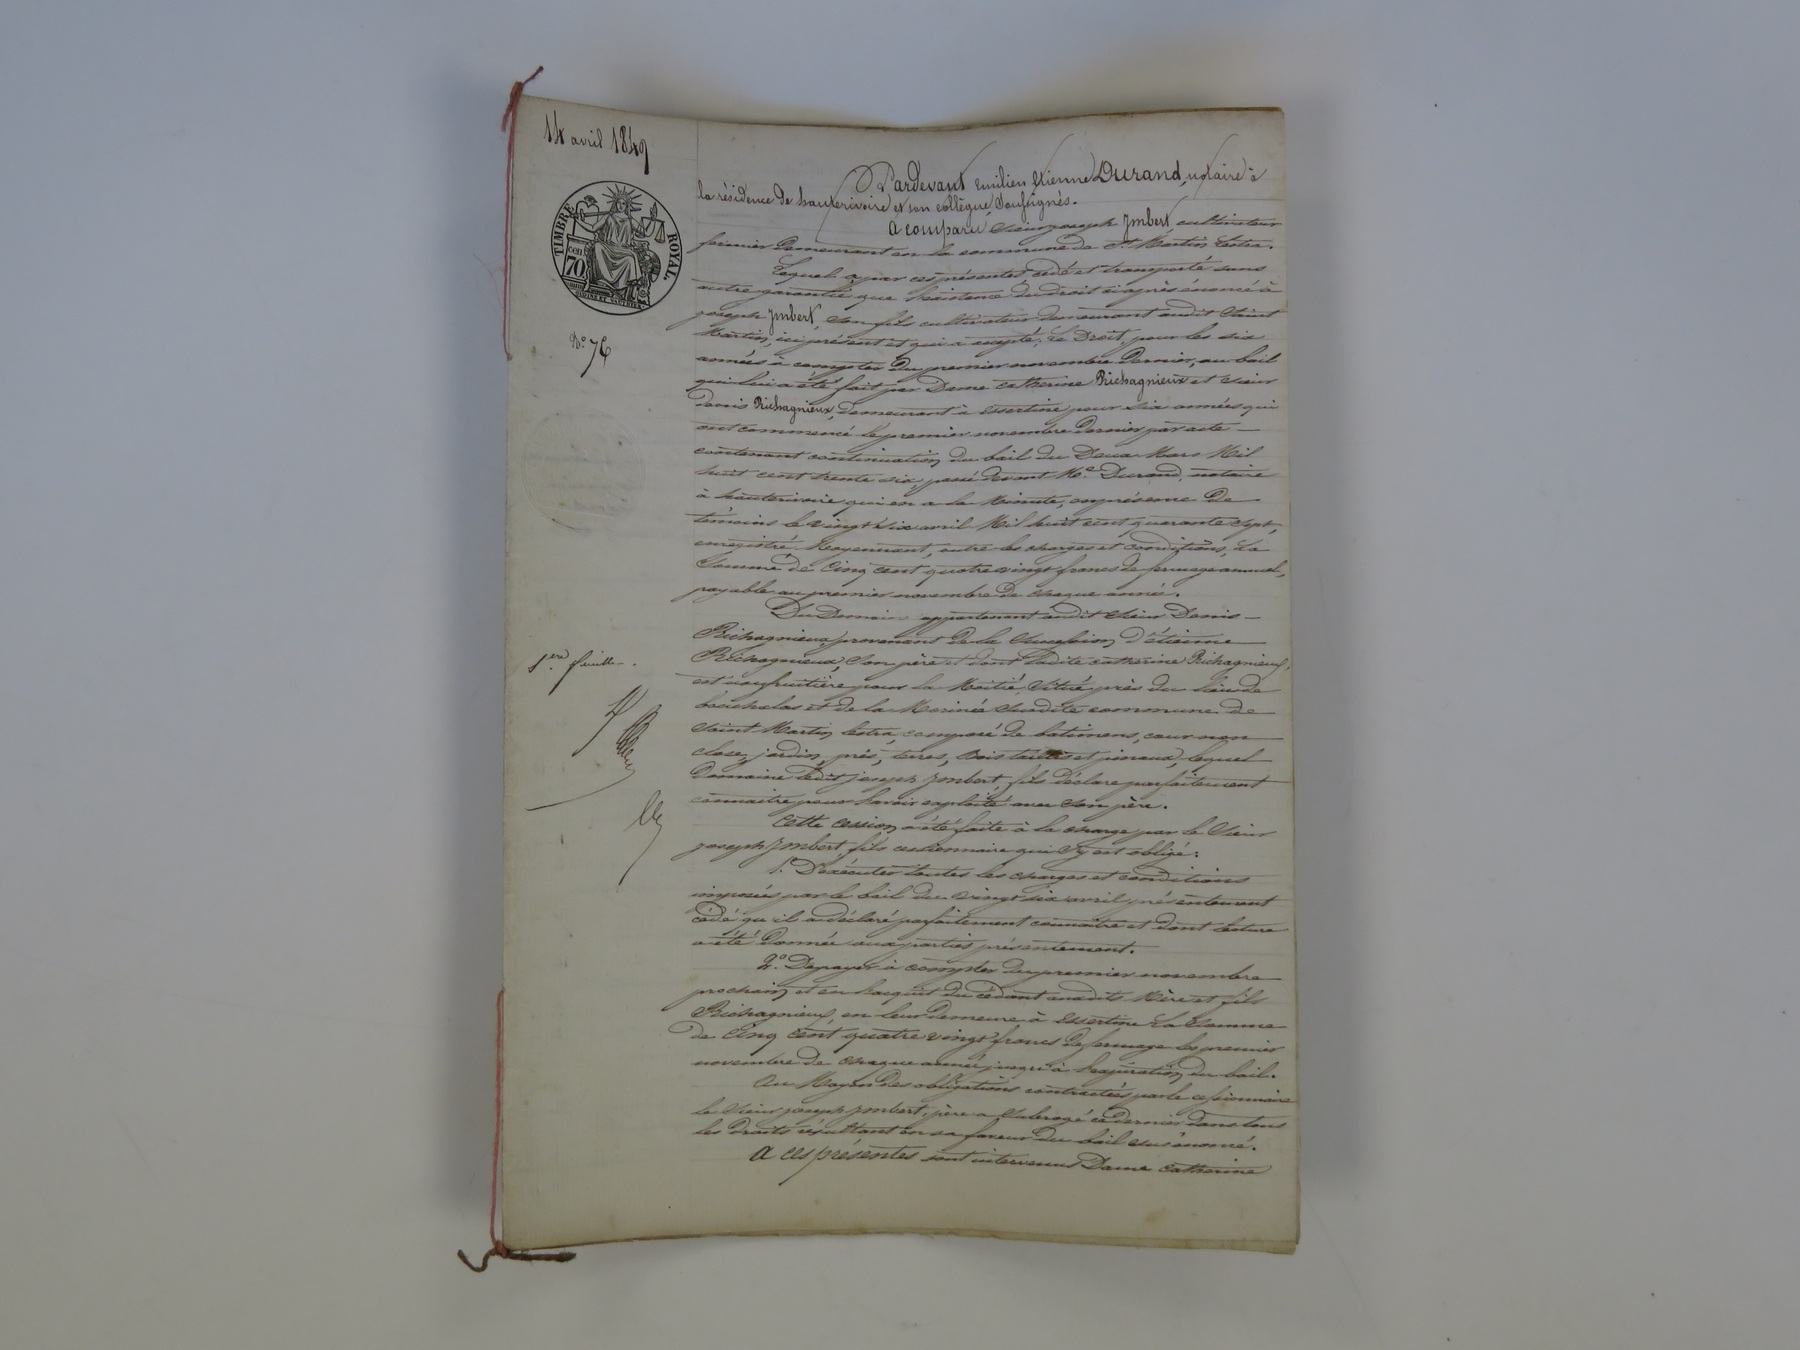 14 avril 1849
TIMBRE ROYAL.
cen 70
N.o 76
Pardevant Emilien Etienne Durand, notaire à
la résidence de hauterivoire et son collègue soussignés.
A comparu Sieur joseph Jmbert, cultivateur
fermier demeurant en la commune de St. Martin Lestra.
Lequel a par ces présentes cédé et transporté sans
autre garantie que l'existence du droit ci après énoncé à
joseph Jmbert, son fils cultivateur demeurant audit Saint
Martin, ici présent et qui a accepté, Le Droit, pour les six
années à compter du premier novembre dernier, au bail
qui lui a été fait par Dame catherine Richagnieux et sieur
denis Richagnieux, demeurant à Essertine pour six années qui
ont commencé le premier novembre dernier par acte
contenant continuation du bail du Deux Mars Mil
huit cent trente six, passé devant Me. Durand, notaire
à hauterivoire qui en a la Minute, en présence de
témoins le vingt six avril Mil huit cent quarante sept,
enregistré. Moyennant, outre les charges et conditions, La
Somme de Cinq cent quatre vingt francs de fermage annuel,
payable au premier novembre de chaque année.
Du Domaine appartenant audit Sieur Denis
Richagnieux provenant de la Succession d'étienne
Richagnieux, Son père et dont ladite catherine Richagnieux,
est usufruitière pour la Moitié, Situé près du lieu de
et de la susdite commune de
Saint Martin lestra composé de batimens, cour non
close, jardin, prés, terres, bois taillis et pineaux, lequel
Domaine ledit joseph Jmbert, fils déclare parfaitement
connaitre pour l'avoir exploité avec Son père.
Cette cession a été faite à la charge par le Sieur
joseph Jmbert fils cessionnaire qui s'y est obligé:
1.o D'exécuter toutes les charges et conditions
imposées par le bail du vingt six avril présentement
cédé qu'il a déclaré parfaitement connaitre et dont lecture
a été donnée aux parties présentement.
2.o De payer à compter du premier novembre
prochain et en l'acquit du cédant auxdits Mère et fils
Richagnieux, en leur demeure à Essertine La Somme
de Cinq cent quatre vingt francs de fermage les premier
novembre de chaque année jusqu'à l'expiration du bail.
Au Moyen des obligations contractées par le cessionnaire
le Sieur joseph Jmbert, père a subrogé ce dernier dans tous
les droits résultant en sa faveur du bail susénoncé.
A ces présentes sont intervenus Dame catherine
1.ere feuille.